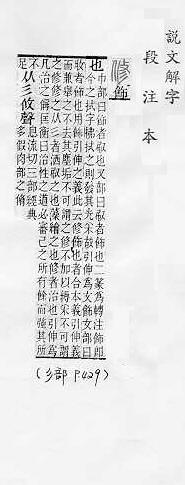 說文解字
段注本
修 飾
也 巾部曰飾者㕞也又部曰㕞者飾也二篆為轉注飾卽
今之拭字拂拭之則發其光采故引伸為文飾女部曰
㛍者飾也用飾引伸之義此云修飾也者合本義引伸義
而兼舉之不去其塵垢不可謂之修不加以縟采不可謂
之修修之从彡者洒㕞之也藻繪之也修者治也引伸為
凡治之偁匡衡曰治性之道必審己之所有餘而強其所
不足
从彡攸聲 息流切三部經典
多假肉部之脩
(彡部 P429)